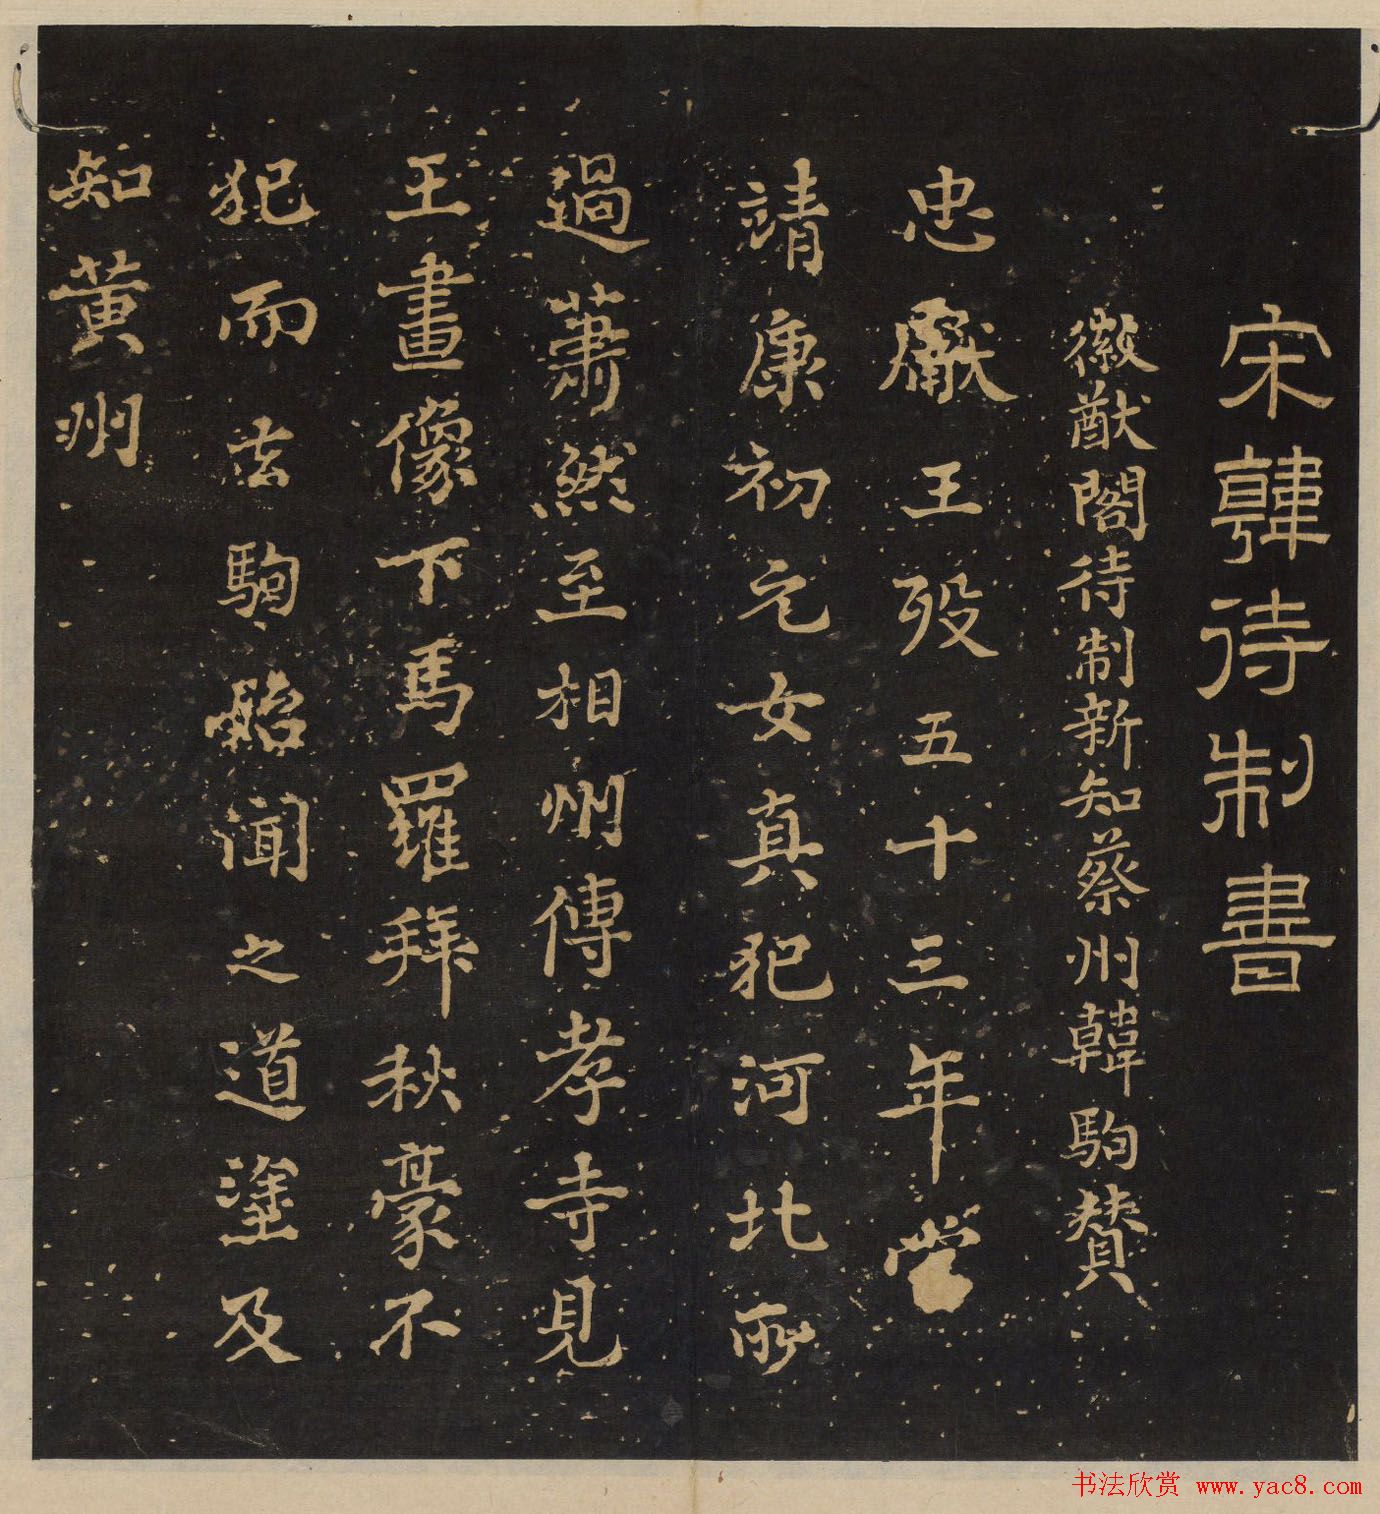 宋韓待制書
徽猷閣待制新知蔡州韓駒贊
忠獻王歿五十三年當
靖康初元女真犯河北所
過蕭然至相州傳孝寺見
王畫像下馬羅拜秋豪不
犯而去駒始聞之道塗及
知黄州
书法欣赏 www.yac8.com